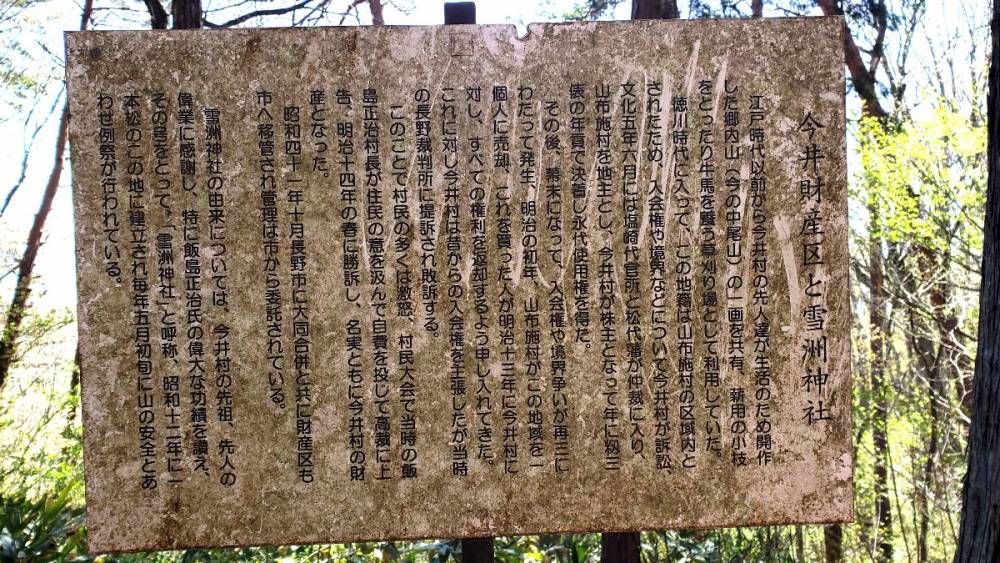 今井財産区と雪洲神社
江戸時代以前から今井村の先人達が生活のため開作
した郷内山(今の中尾山)の一画を共有、薪用の小枝
をとったり牛馬を養う草刈り場として利用していた。
徳川時代に入って、この地籍は山布施村の区域内と
されたため、入会権や境界などについて今井村が訴訟
文化五年六月には塩崎代官所と松代藩が仲裁に入り、
山布施村を地主とし、今井村が株主となって年に籾三
俵の年貢で決着し永代使用権を得た。
その後、幕末になって、入会権や境界争いが再三に
わたって発生、明治の初年、山布施村がこの地域を一
個人に売却、これを買った人が明治十三年に今井村に
対し、すべての権利を返却するよう申し入れてきた。
これに対し今井村は昔からの入会権を主張したが当時
の長野裁判所に提訴され敗訴する。
このことで村民の多くは激怒、村民大会で当時の飯
島正治村長が住民の意を汲んで自費を投じて高裁に上
告、明治十四年の春に勝訴し、名実ともに今井村の財
産となった。
昭和四十一年十月長野市に大同合併と共に財産区も
市へ移管され管理は市から委託されている。
雪洲神社の由来については、今井村の先祖、先人の
偉業に感謝し、特に飯島正治氏の偉大な功績を讃え、
その号をとって、「雪洲神社」と呼称、昭和十二年に一
本松のこの地に建立され毎年五月初旬に山の安全とあ
わせ例祭が行われている。